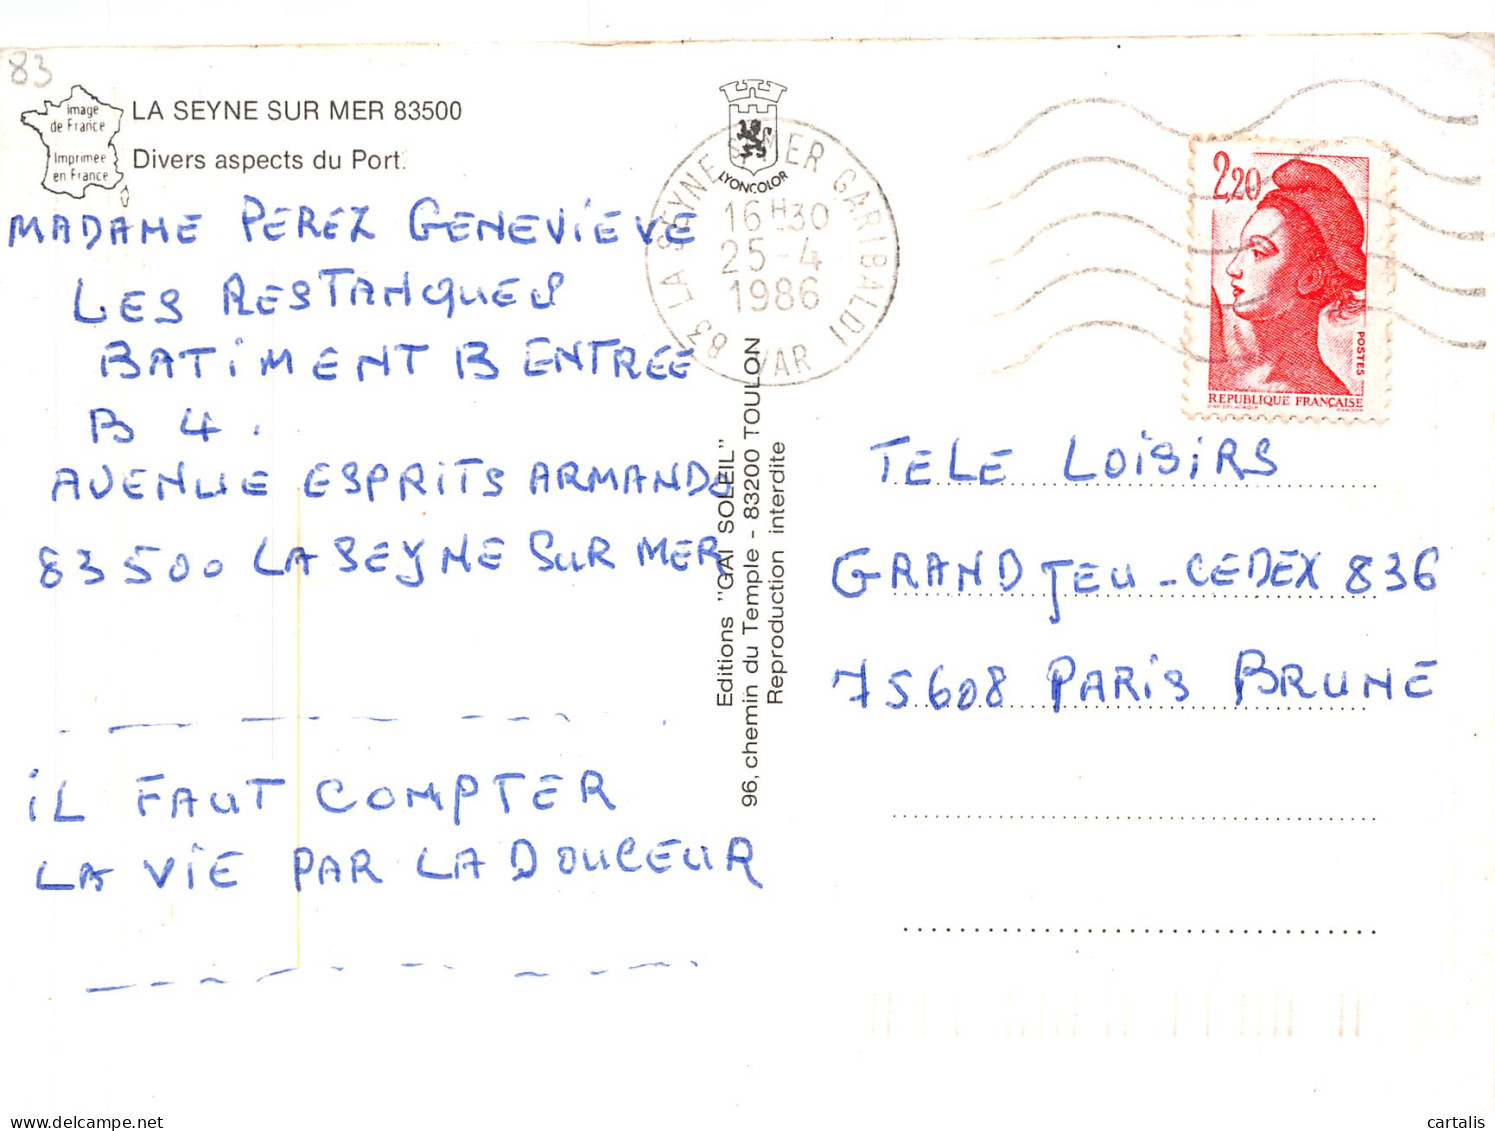 83
Image
de France
Imprimee
en France
LA SEYNE SUR MER 83500
Divers aspects du Port.
MADAME PEREZ GENEVIEVE
LES RESTANQUES
BATIMENT B ENTREE
B 4.
AVENUE ESPRITS ARMANDO
83500 LA SEYNE SUR MER
IL FAUT COMPTER
LA VIE PAR LA DOUCEUR
LYONCOLOR
83 LA SEYNE S/MER GARIBALDI
16H30
25-4
1986
VAR
Editions "GAI SOLEIL"
96, chemin du Temple - 83200 TOULON
Reproduction interdite
2,20
POSTES
REPUBLIQUE FRANÇAISE
TELE LOISIRS
GRAND JEU - CEDEX 836
75608 PARIS BRUNE
cartalis